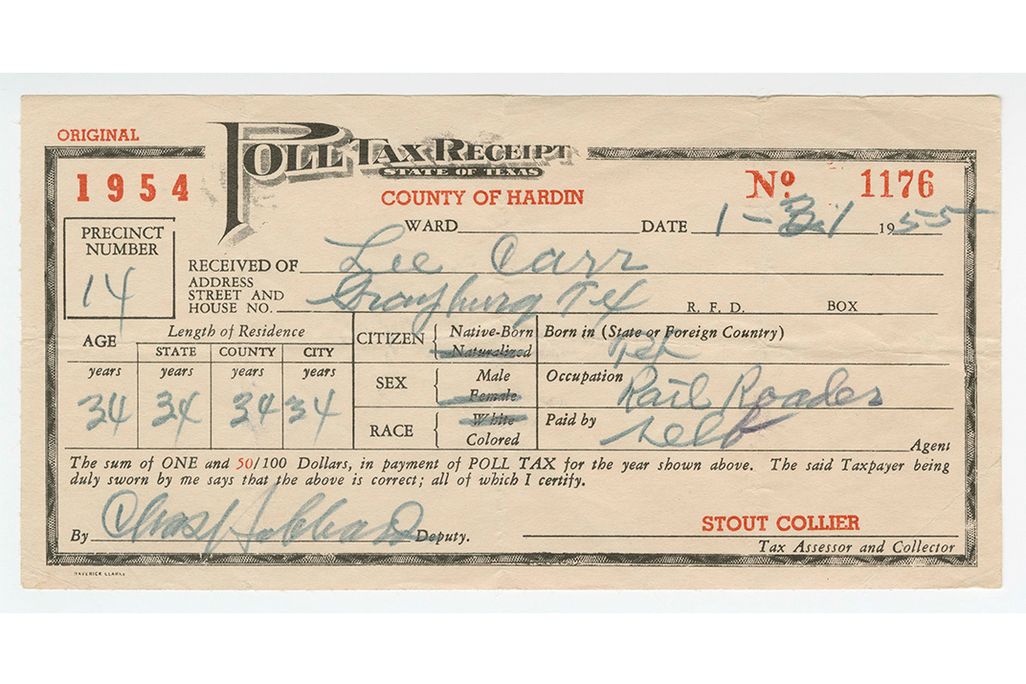 ORIGINAL
POLL TAX RECEIPT
STATE OF TEXAS
1954
COUNTY OF HARDIN
Nº 1176
WARD DATE 1-31 1955
PRECINCT NUMBER
14
RECEIVED OF Lee Carr
ADDRESS
STREET AND
HOUSE NO. Grayburg Tex R. F. D. BOX
AGE
Length of Residence
STATE COUNTY CITY
years years years years
34 34 34 34
CITIZEN { Native-Born
Naturalized
Born in (State or Foreign Country)
Tex
SEX { Male
Female
Occupation Rail Roader
RACE { White
Colored
Paid by self Agent
The sum of ONE and 50/100 Dollars, in payment of POLL TAX for the year shown above. The said Taxpayer being
duly sworn by me says that the above is correct; all of which I certify.
By Chas Hubbard Deputy.
STOUT COLLIER
Tax Assessor and Collector